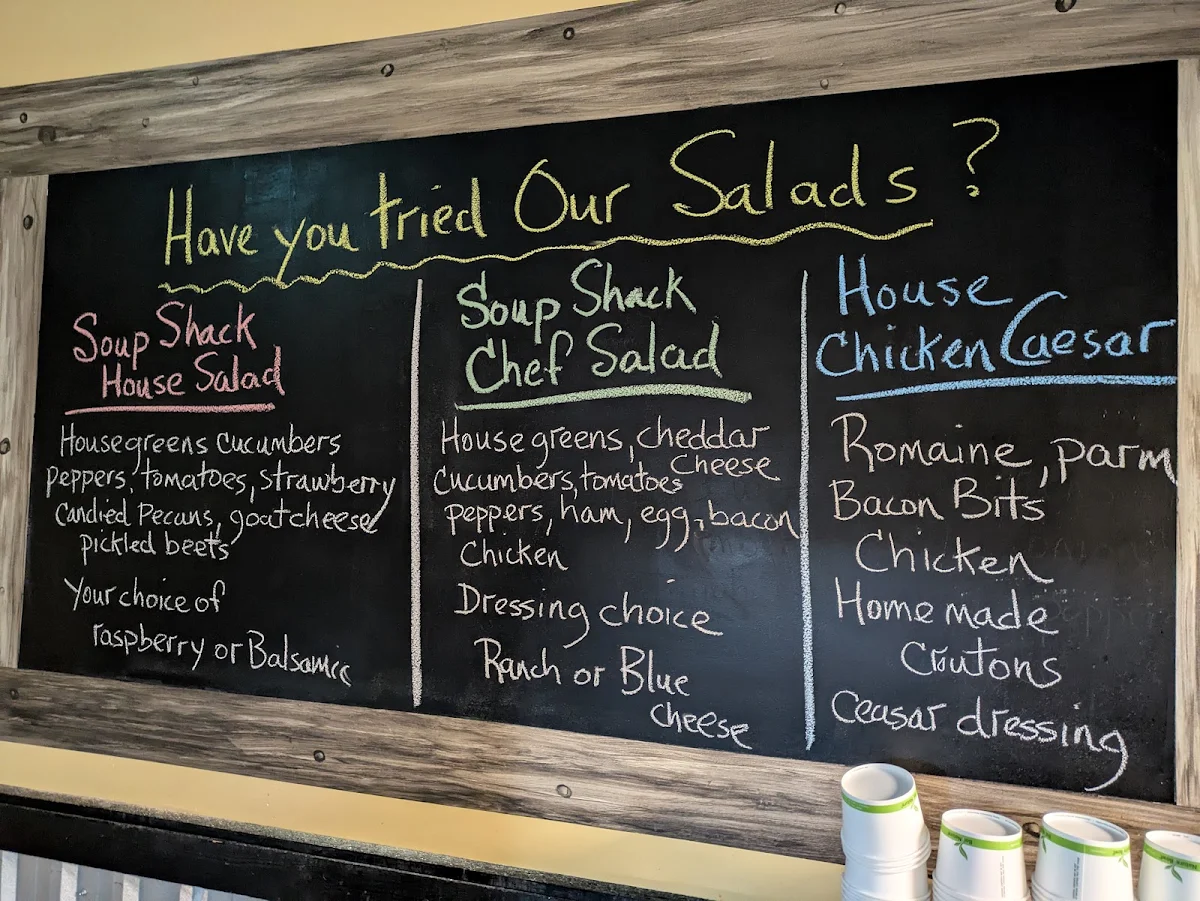 Have you tried Our Salads?
Soup Shack
House Salad
House greens cucumbers
peppers, tomatoes, strawberry
Candied Pecans, goat cheese
pickled beets
Your choice of
raspberry or Balsamic
Soup Shack
Chef Salad
House greens, cheddar
Cheese
cucumbers, tomatoes
peppers, ham, egg, bacon
Chicken
Dressing choice
Ranch or Blue
cheese
House
Chicken Caesar
Romaine, parm
Bacon Bits
Chicken
Home made
Croutons
Ceasar dressing